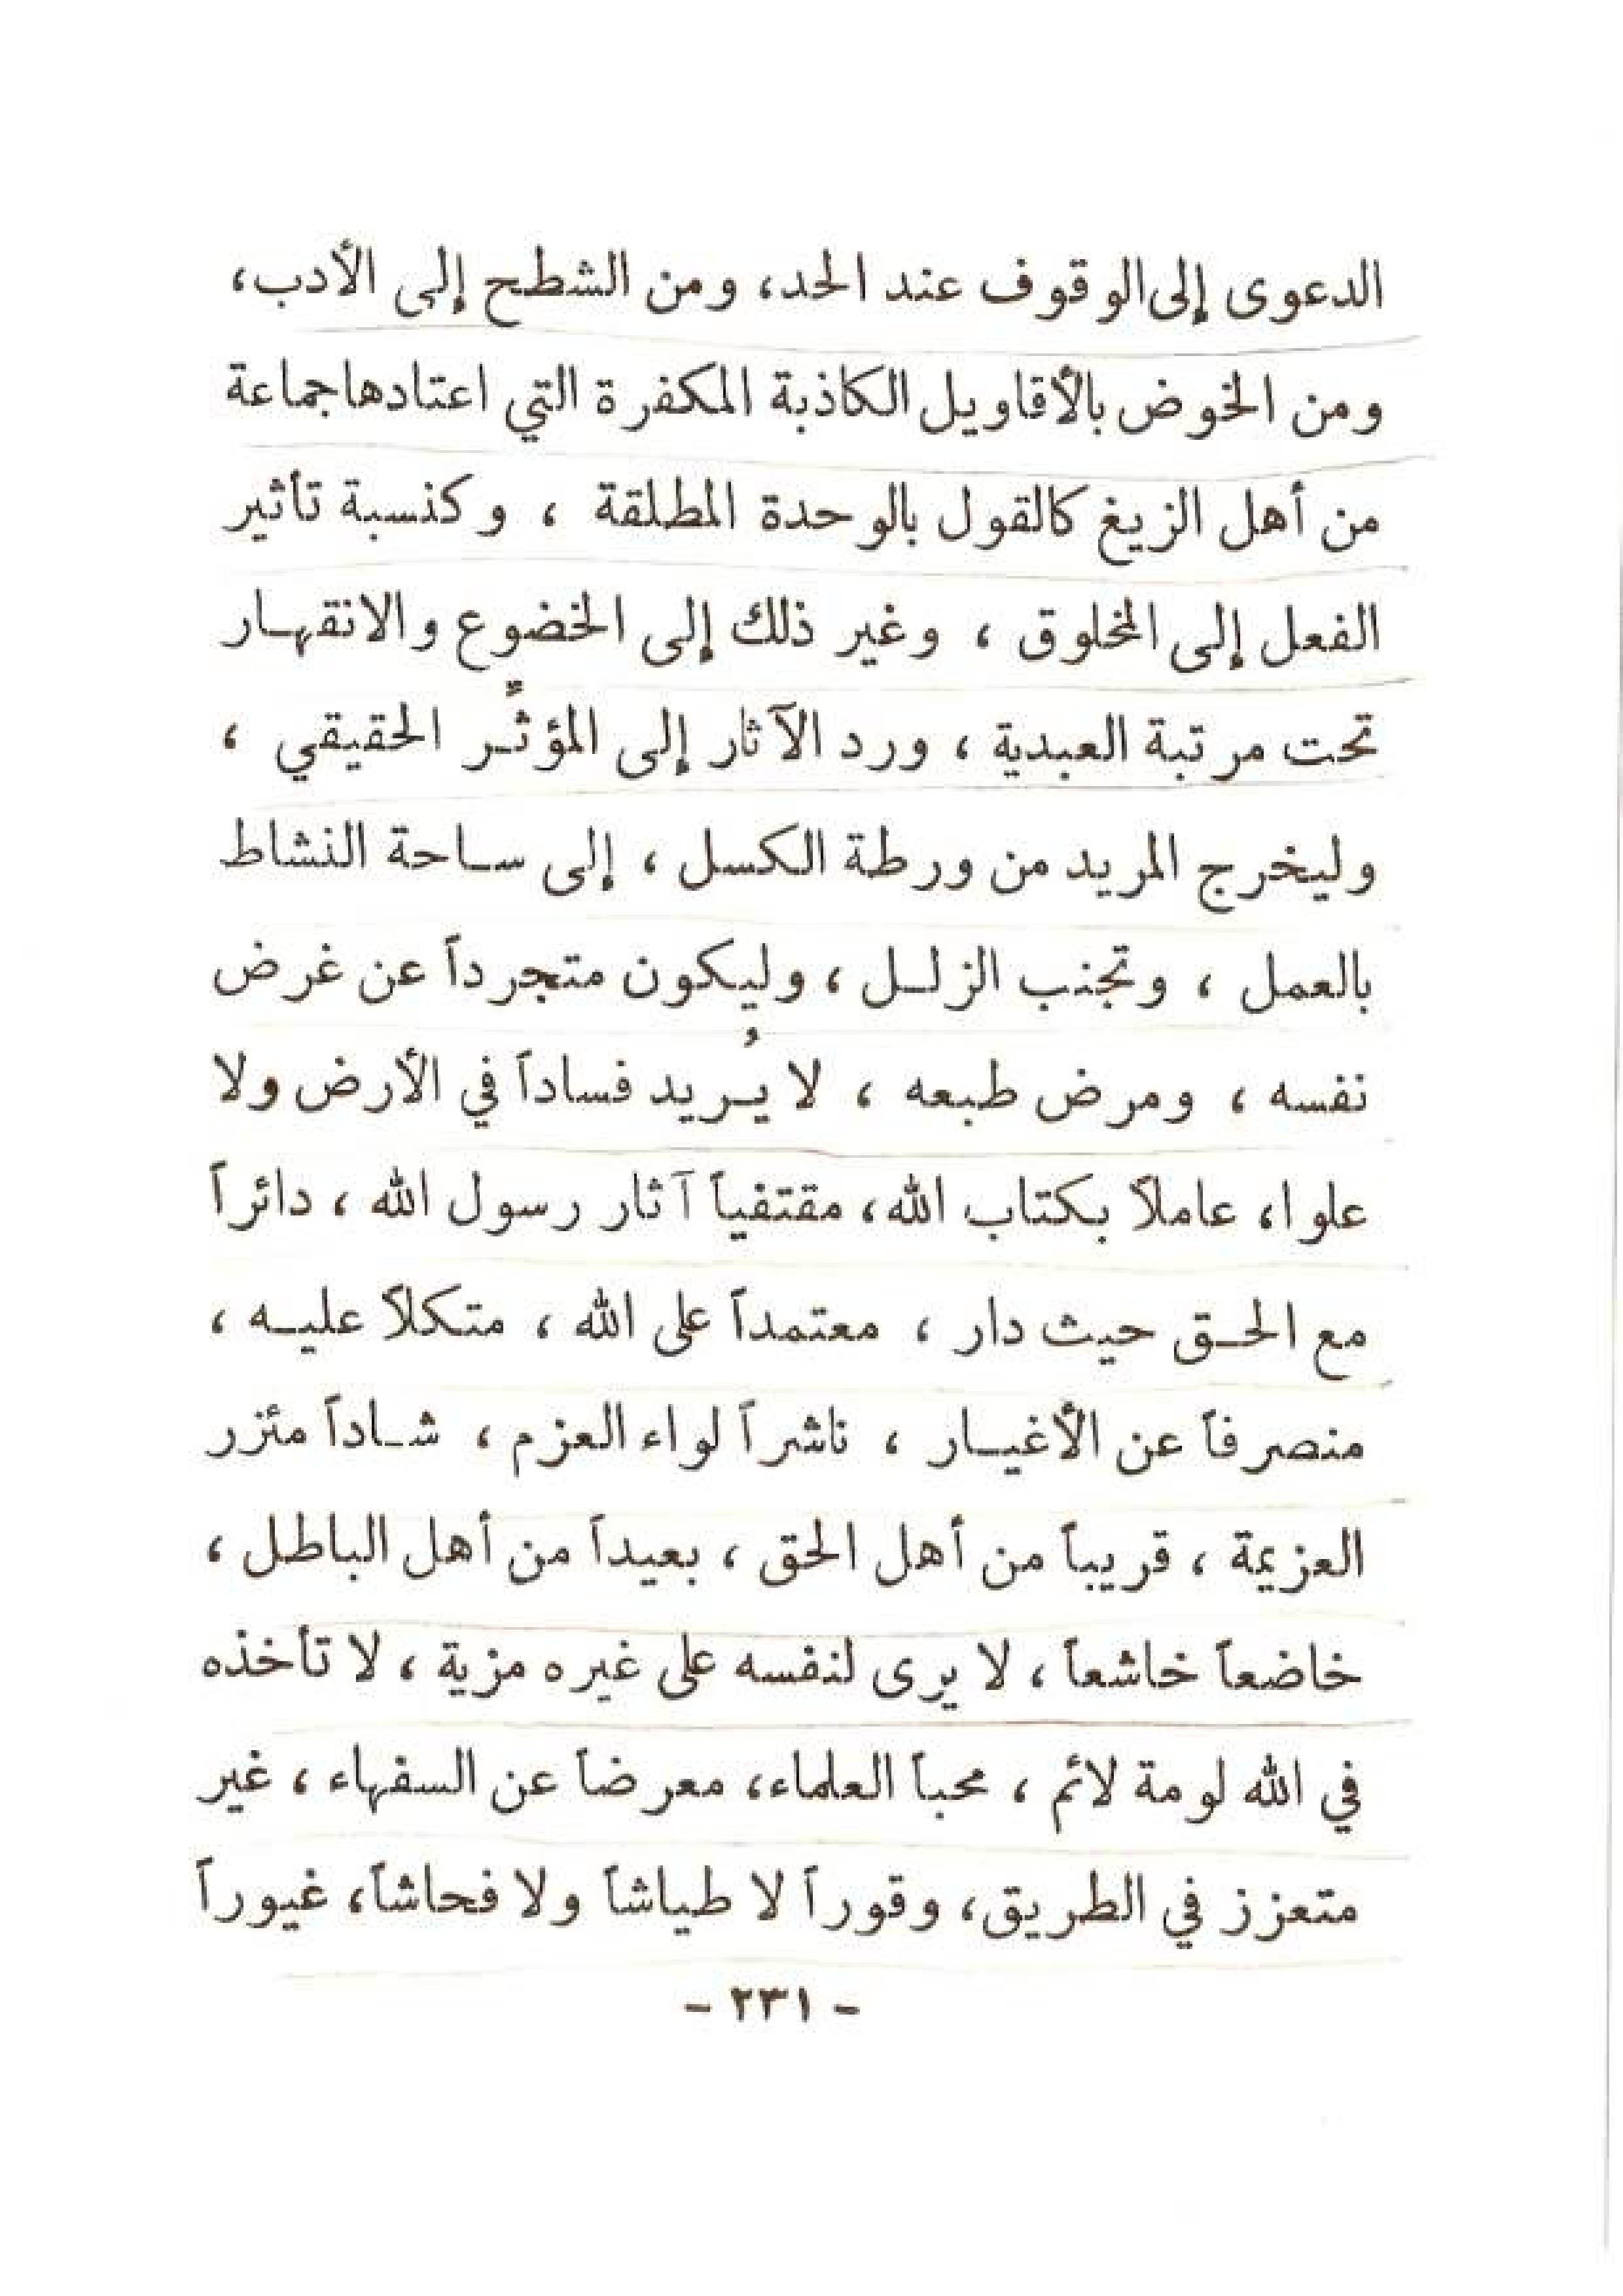 الدعوى إلى الوقوف عند الحد، ومن الشطح إلى الأدب،
ومن الخوض بالأقاويل الكاذبة المكفرة التي اعتادها جماعة
من أهل الزيغ كالقول بالوحدة المطلقة ، وكنسبة تأثير
الفعل إلى المخلوق ، وغير ذلك إلى الخضوع والانقهـار
تحت مرتبة العبدية ، ورد الآثار إلى المؤثـِّـر الحقيقي ،
وليخرج المريد من ورطة الكسل ، إلى سـاحة النشاط
بالعمل ، وتجنب الزلـل ، وليكون متجرداً عن غرض
نفسه ، ومرض طبعه ، لا يـُـريد فساداً في الأرض ولا
علوا، عاملاً بكتاب الله، مقتفياً آثار رسول الله ، دائراً
مع الحـق حيث دار ، معتمداً على الله ، متكلاً عليـه ،
منصرفاً عن الأغيـار ، ناشراً لواء العزم ، شـاداً مئزر
العزيمة ، قريباً من أهل الحق ، بعيداً من أهل الباطل ،
خاضعاً خاشعاً ، لا يرى لنفسه على غيره مزية ، لا تأخذه
في الله لومة لائم ، محباً العلماء، معرضاً عن السفهاء ، غير
متعزز في الطريق، وقوراً لا طياشاً ولا فحاشاً، غيوراً
- ٢٣١ -